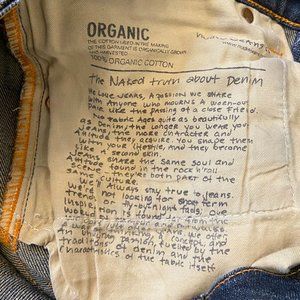 ORGANIC
THE COTTON USED IN THE MAKING
OF THIS GARMENT IS ORGANICALLY GROWN
AND HARVESTED
100% ORGANIC COTTON
The Naked truth about Denim
We Love Jeans, A passion we share
with Anyone who mourns A worn-out
pair like the passing of a close friend.
No fabric Ages quite as beautifully
as Denim; the longer you wear your
Jeans, the more character and
Attitude they acquire. You shape them
with your lifestyle, and they become
like a second skin.
Jeans share the same soul and
Attitude found in the rock'n'roll
scene. They're both part of the
same culture.
We'll Always stay true to jeans.
We're not looking for short term
trends or fly-by-night fads. Our
inspiration is found from the
traditions of denim and the
characteristics of the fabric itself